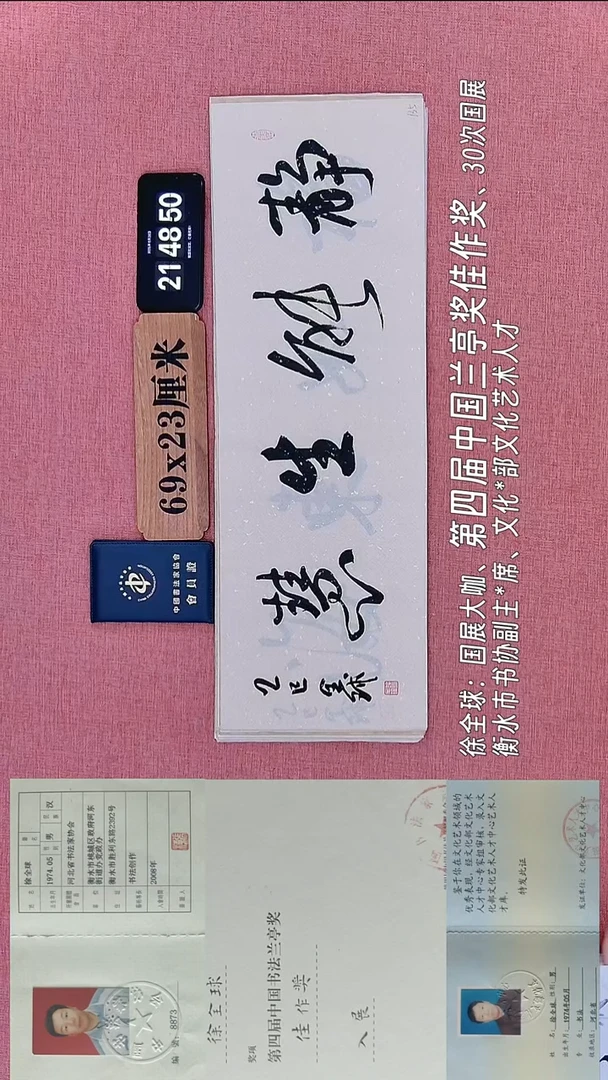 21 48 50
69x23厘米
中國書法家協會
會員證
静能生慧
乙巳 全球
徐全球：国展大咖、第四届中国兰亭奖佳作奖、30次国展
衡水市书协副主*席、文化*部文化艺术人才
徐全球 男
1974.05 汉
河北省书法家协会
衡水市桃城区政府河东
街道办党政办
衡水市胜利东路2202号
书法创作
2008年
编号: 8873
徐全球
奖项
第四届中国书法兰亭奖
佳作奖
入展
鉴于你在文化艺术领域的
优秀表现，经文化部文化艺术
人才中心专家组审核，录入文
化部文化艺术人才中心艺术人
才库。
特发此证
发证单位：文化部文化艺术人才中心
姓名：徐全球 性别：男
出生年月：1974年05月
专业：书法